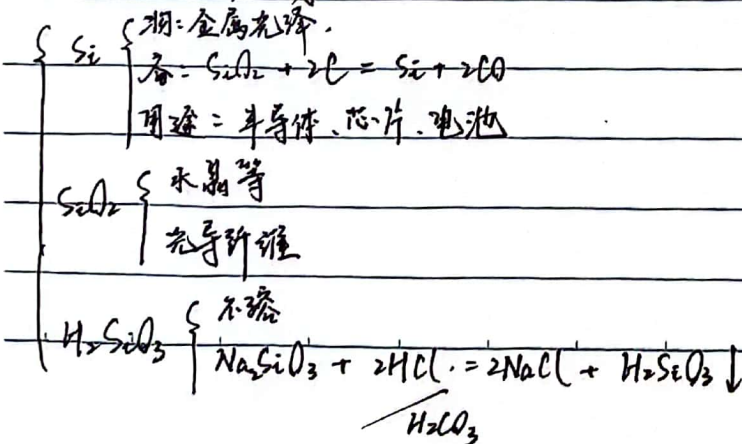 Si
物: 金属光泽.
备: SiO₂ + 2C = Si + 2CO
用途: 半导体、芯片、电池
SiO₂
水晶等
光导纤维
H₂SiO₃
不溶
Na₂SiO₃ + 2HCl = 2NaCl + H₂SiO₃↓
H₂CO₃